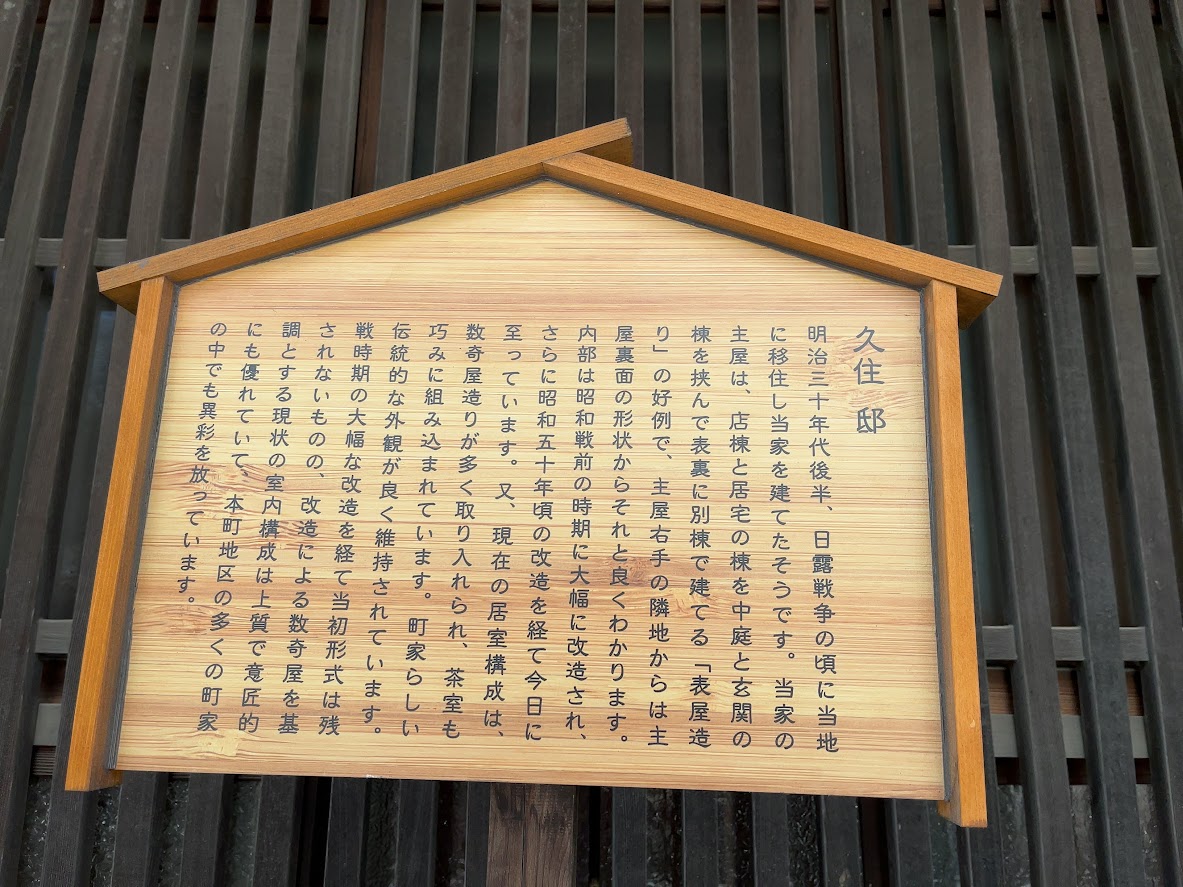 久住邸
明治三十年代後半、日露戦争の頃に当地
に移住し当家を建てたそうです。当家の
主屋は、店棟と居宅の棟を中庭と玄関の
棟を挟んで表裏に別棟で建てる「表屋造
り」の好例で、主屋右手の隣地からは主
屋裏面の形状からそれと良くわかります。
内部は昭和戦前の時期に大幅に改造され、
さらに昭和五十年頃の改造を経て今日に
至っています。又、現在の居室構成は、
数奇屋造りが多く取り入れられ、茶室も
巧みに組み込まれています。町家らしい
伝統的な外観が良く維持されています。
戦時期の大幅な改造を経て当初形式は残
されないものの、改造による数奇屋を基
調とする現状の室内構成は上質で意匠的
にも優れていて、本町地区の多くの町家
の中でも異彩を放っています。